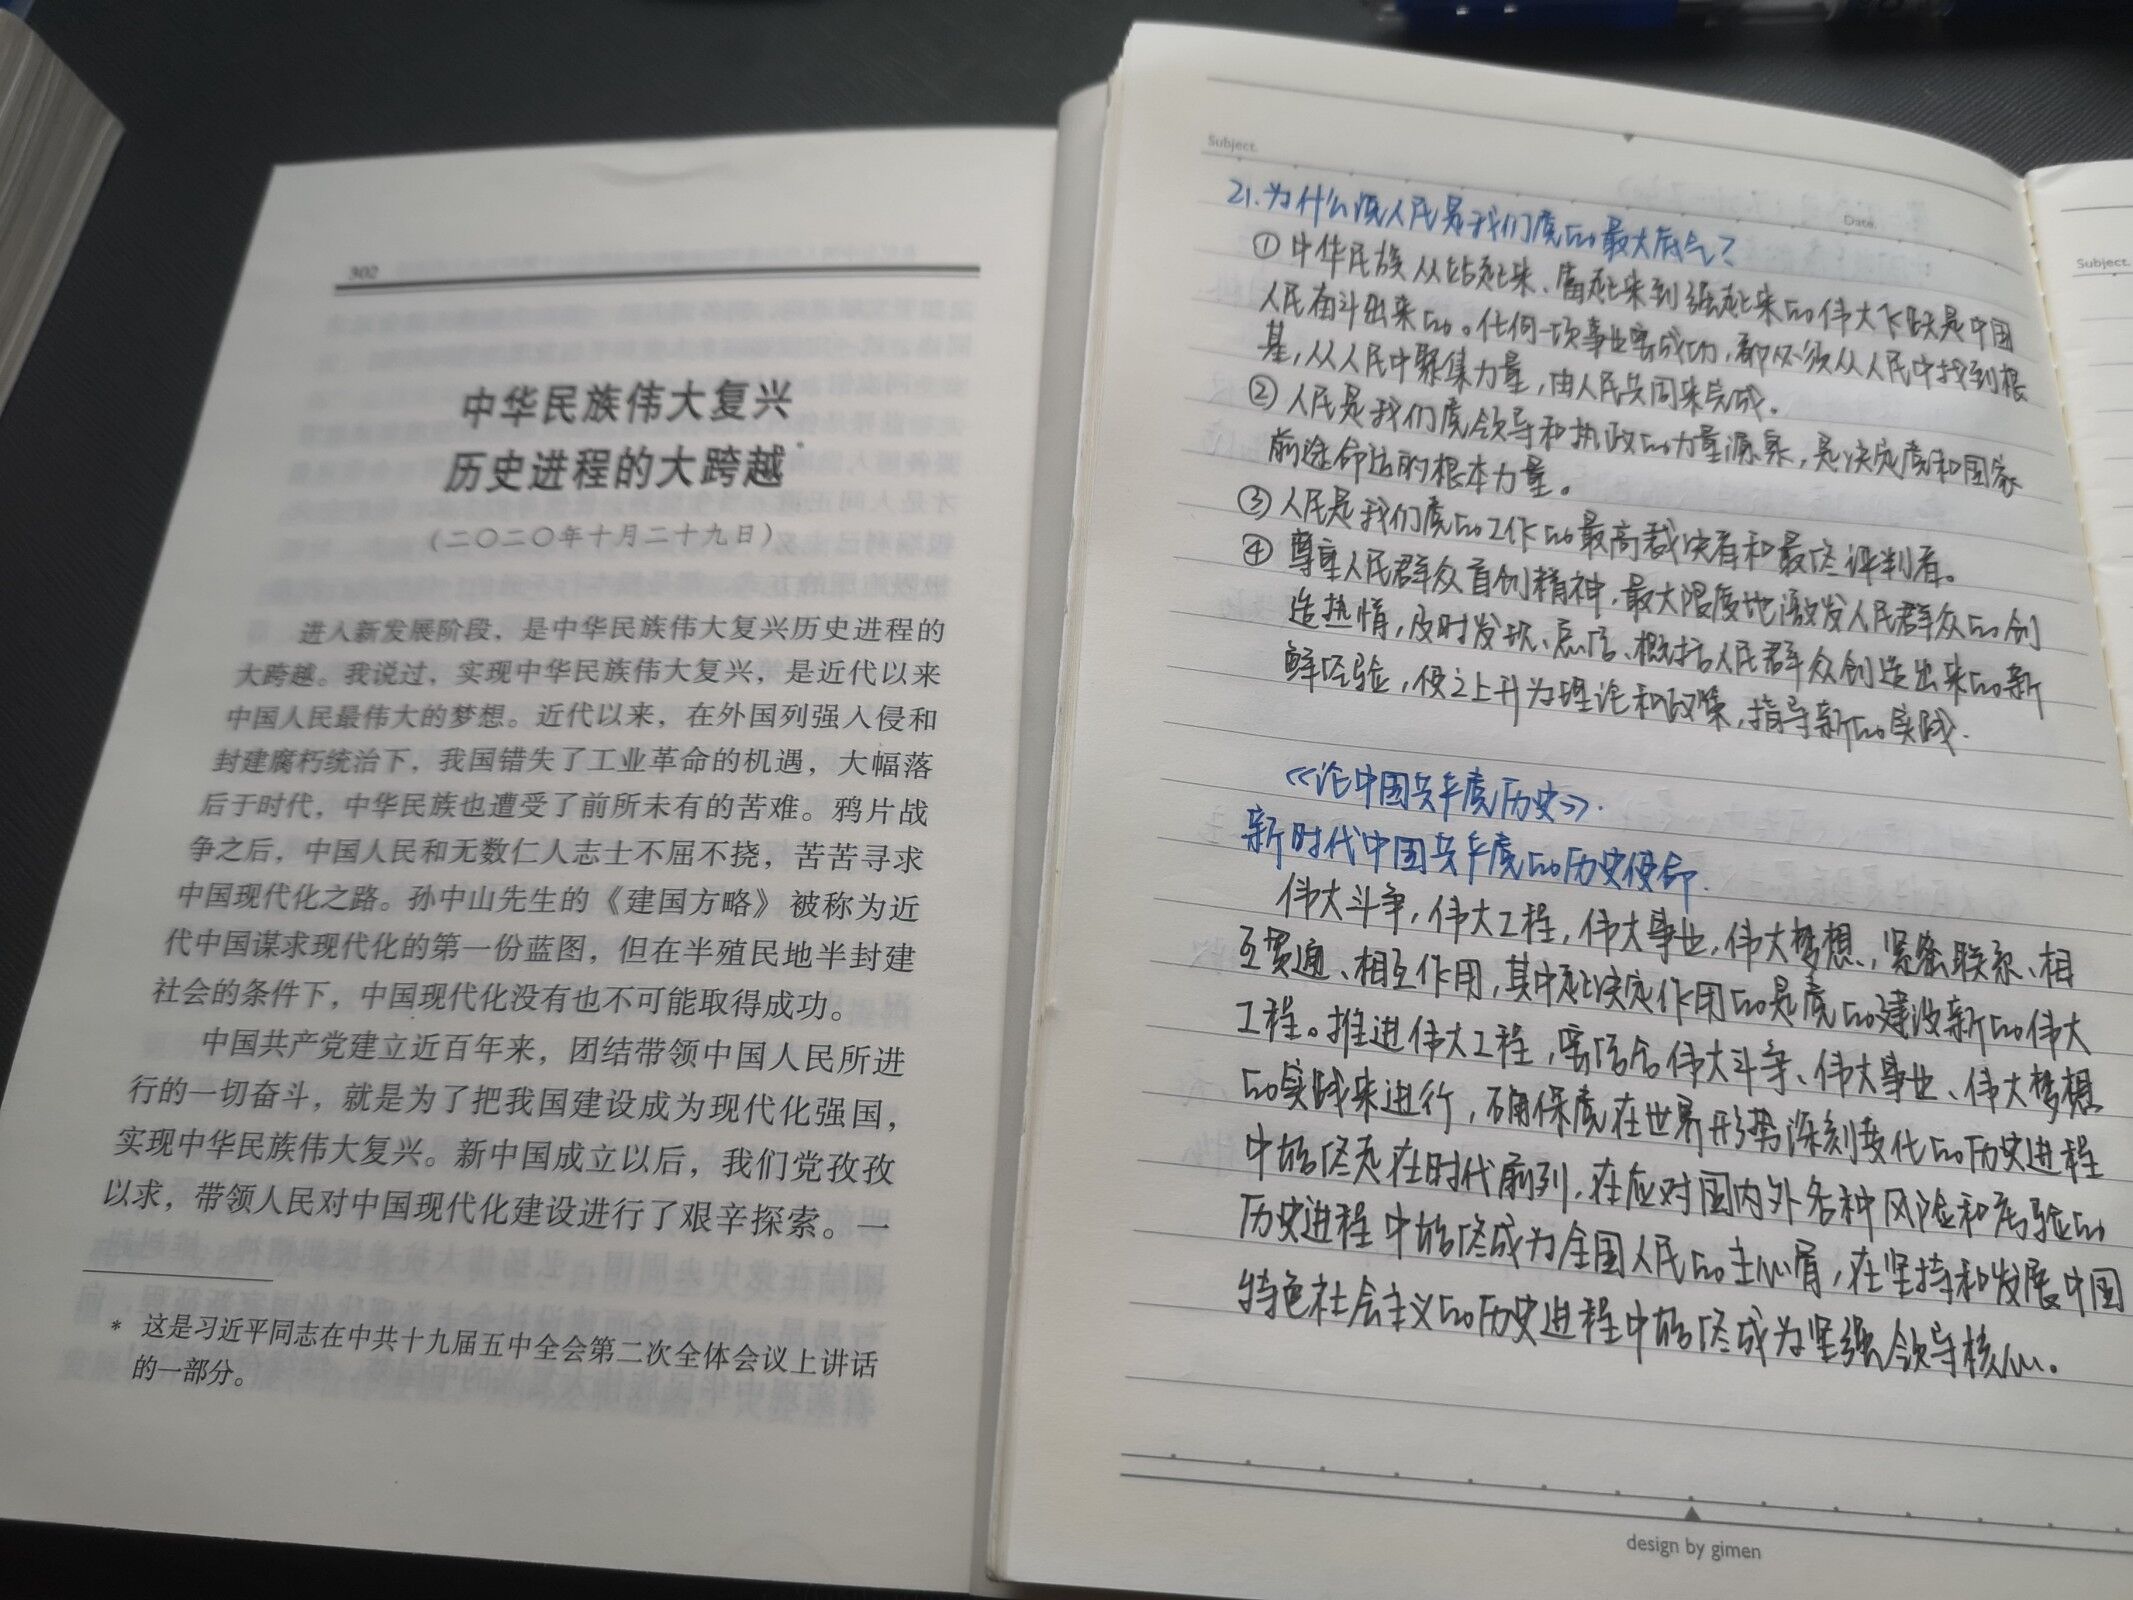 302
中华民族伟大复兴
历史进程的大跨越*
（二〇二〇年十月二十九日）
进入新发展阶段，是中华民族伟大复兴历史进程的
大跨越。我说过，实现中华民族伟大复兴，是近代以来
中国人民最伟大的梦想。近代以来，在外国列强入侵和
封建腐朽统治下，我国错失了工业革命的机遇，大幅落
后于时代，中华民族也遭受了前所未有的苦难。鸦片战
争之后，中国人民和无数仁人志士不屈不挠，苦苦寻求
中国现代化之路。孙中山先生的《建国方略》被称为近
代中国谋求现代化的第一份蓝图，但在半殖民地半封建
社会的条件下，中国现代化没有也不可能取得成功。
中国共产党建立近百年来，团结带领中国人民所进
行的一切奋斗，就是为了把我国建设成为现代化强国，
实现中华民族伟大复兴。新中国成立以后，我们党孜孜
以求，带领人民对中国现代化建设进行了艰辛探索。一
* 这是习近平同志在中共十九届五中全会第二次全体会议上讲话
的一部分。
Subject.
Date.
21.为什么说人民是我们党的最大底气？
①中华民族从站起来、富起来到强起来的伟大飞跃是中国
人民奋斗出来的。任何一项事业要成功，都必须从人民中找到根
基，从人民中聚集力量，由人民共同来完成.
②人民是我们党领导和执政的力量源泉，是决定党和国家
前途命运的根本力量。
③人民是我们党的工作的最高裁决者和最终评判者。
④尊重人民群众首创精神，最大限度地激发人民群众的创
造热情，及时发现、总结、概括人民群众创造出来的新
鲜经验，使之上升为理论和政策，指导新的实践.
《论中国共产党历史》.
新时代中国共产党的历史使命.
伟大斗争，伟大工程，伟大事业，伟大梦想，紧密联系、相
互贯通、相互作用，其中起决定作用的是党的建设新的伟大
工程。推进伟大工程，要结合伟大斗争、伟大事业、伟大梦想
的实践来进行，确保党在世界形势深刻变化的历史进程
中始终走在时代前列，在应对国内外各种风险和考验的
历史进程中始终成为全国人民的主心骨，在坚持和发展中国
特色社会主义的历史进程中始终成为坚强领导核心。
design by gimen
Subject.